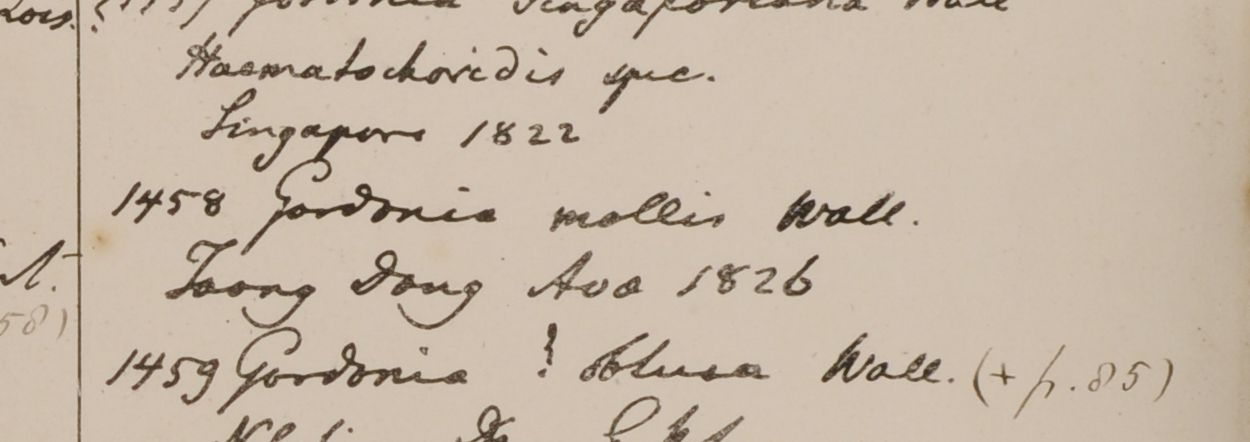 Gordonia Singaporeana Wall
Haematocharidis spec.
Singapore 1822
1458 Gordonia mollis Wall.
Taong Dong Ava 1826
1459 Gordonia ? obtusa Wall. (+ p. 85)
58)